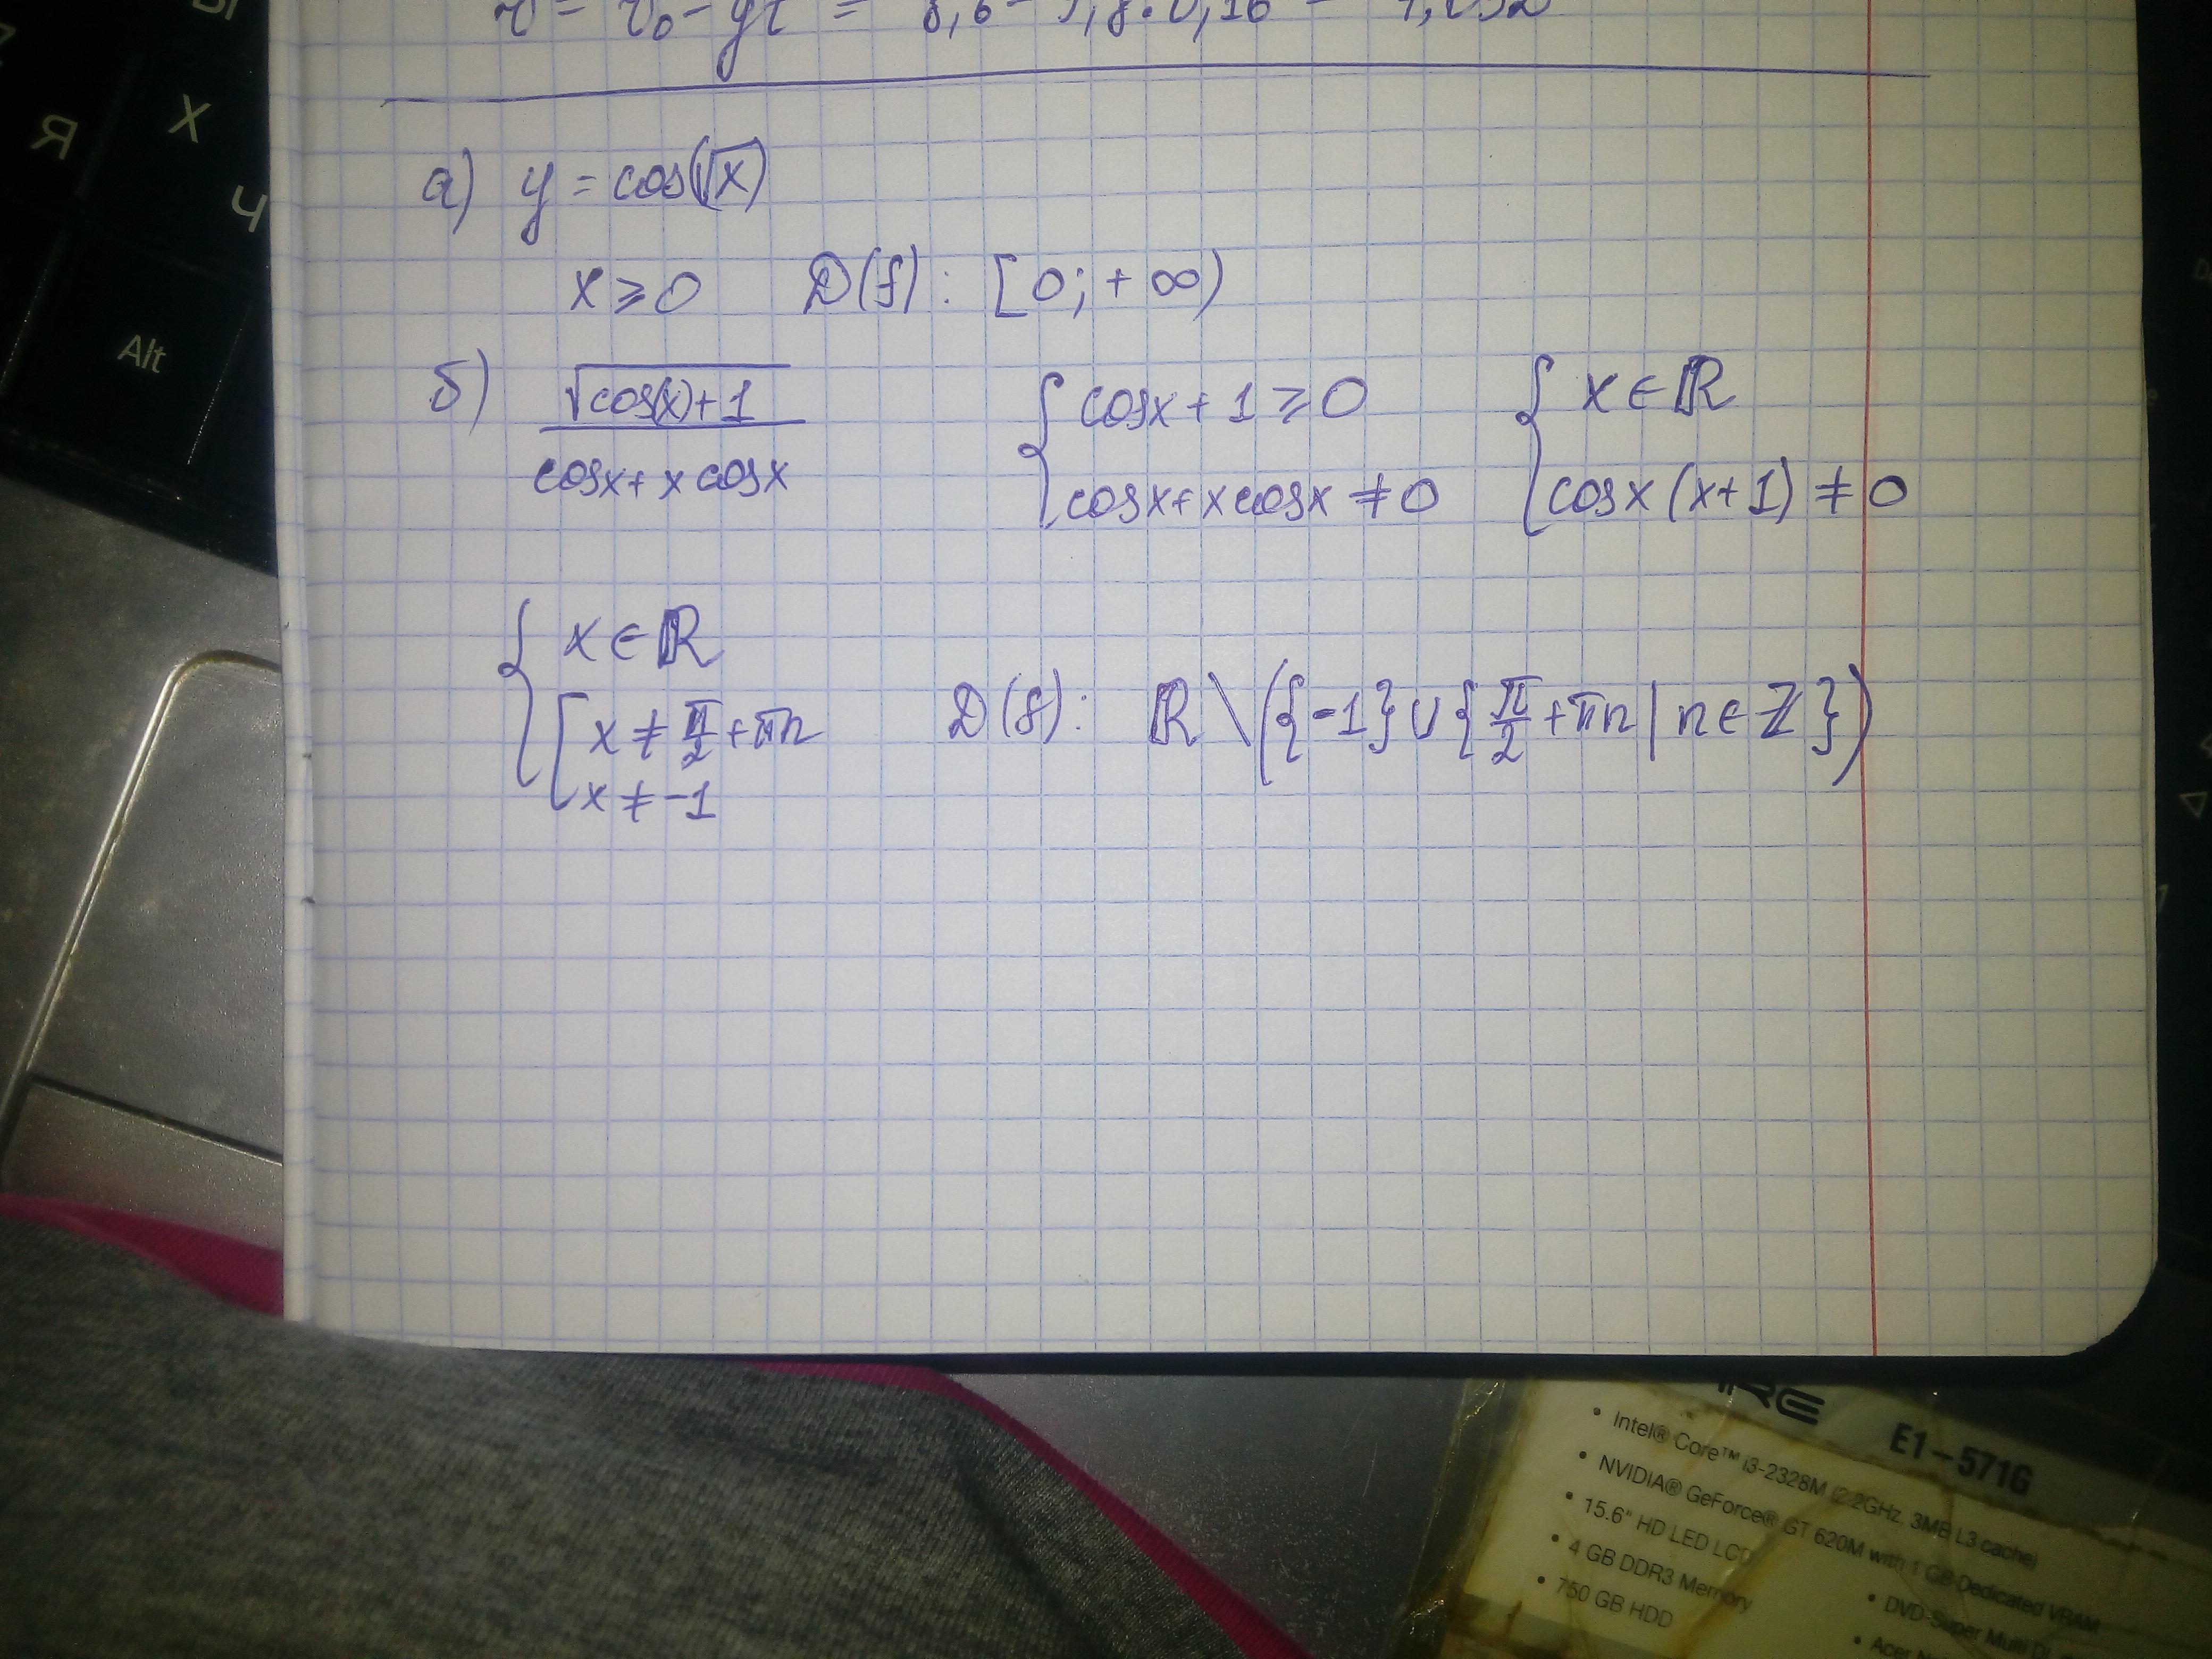 v = v₀ - gt = 8,6 - 9,8·0,16 =
а) y = cos(√x)
x ⩾ 0 D(f): [0; +∞)
б) √(cos(x)+1) / (cosx + x cosx) { cosx + 1 ⩾ 0 { x ∈ ℝ
cosx + x cosx ≠ 0 cosx (x+1) ≠ 0
{ x ∈ ℝ
[ x ≠ π/2 + πn D(f): ℝ \ ({-1} ∪ {π/2 + πn | n ∈ ℤ})
x ≠ -1
Я
Х
Ч
Ы
Alt
E1-571G
• Intel® Core™ i3-2328M (2.2GHz, 3MB L3 cache)
• NVIDIA® GeForce® GT 620M with 1 GB Dedicated VRAM
• 15.6" HD LED LCD
• 4 GB DDR3 Memory
• 750 GB HDD
• DVD-Super Multi
• Acer